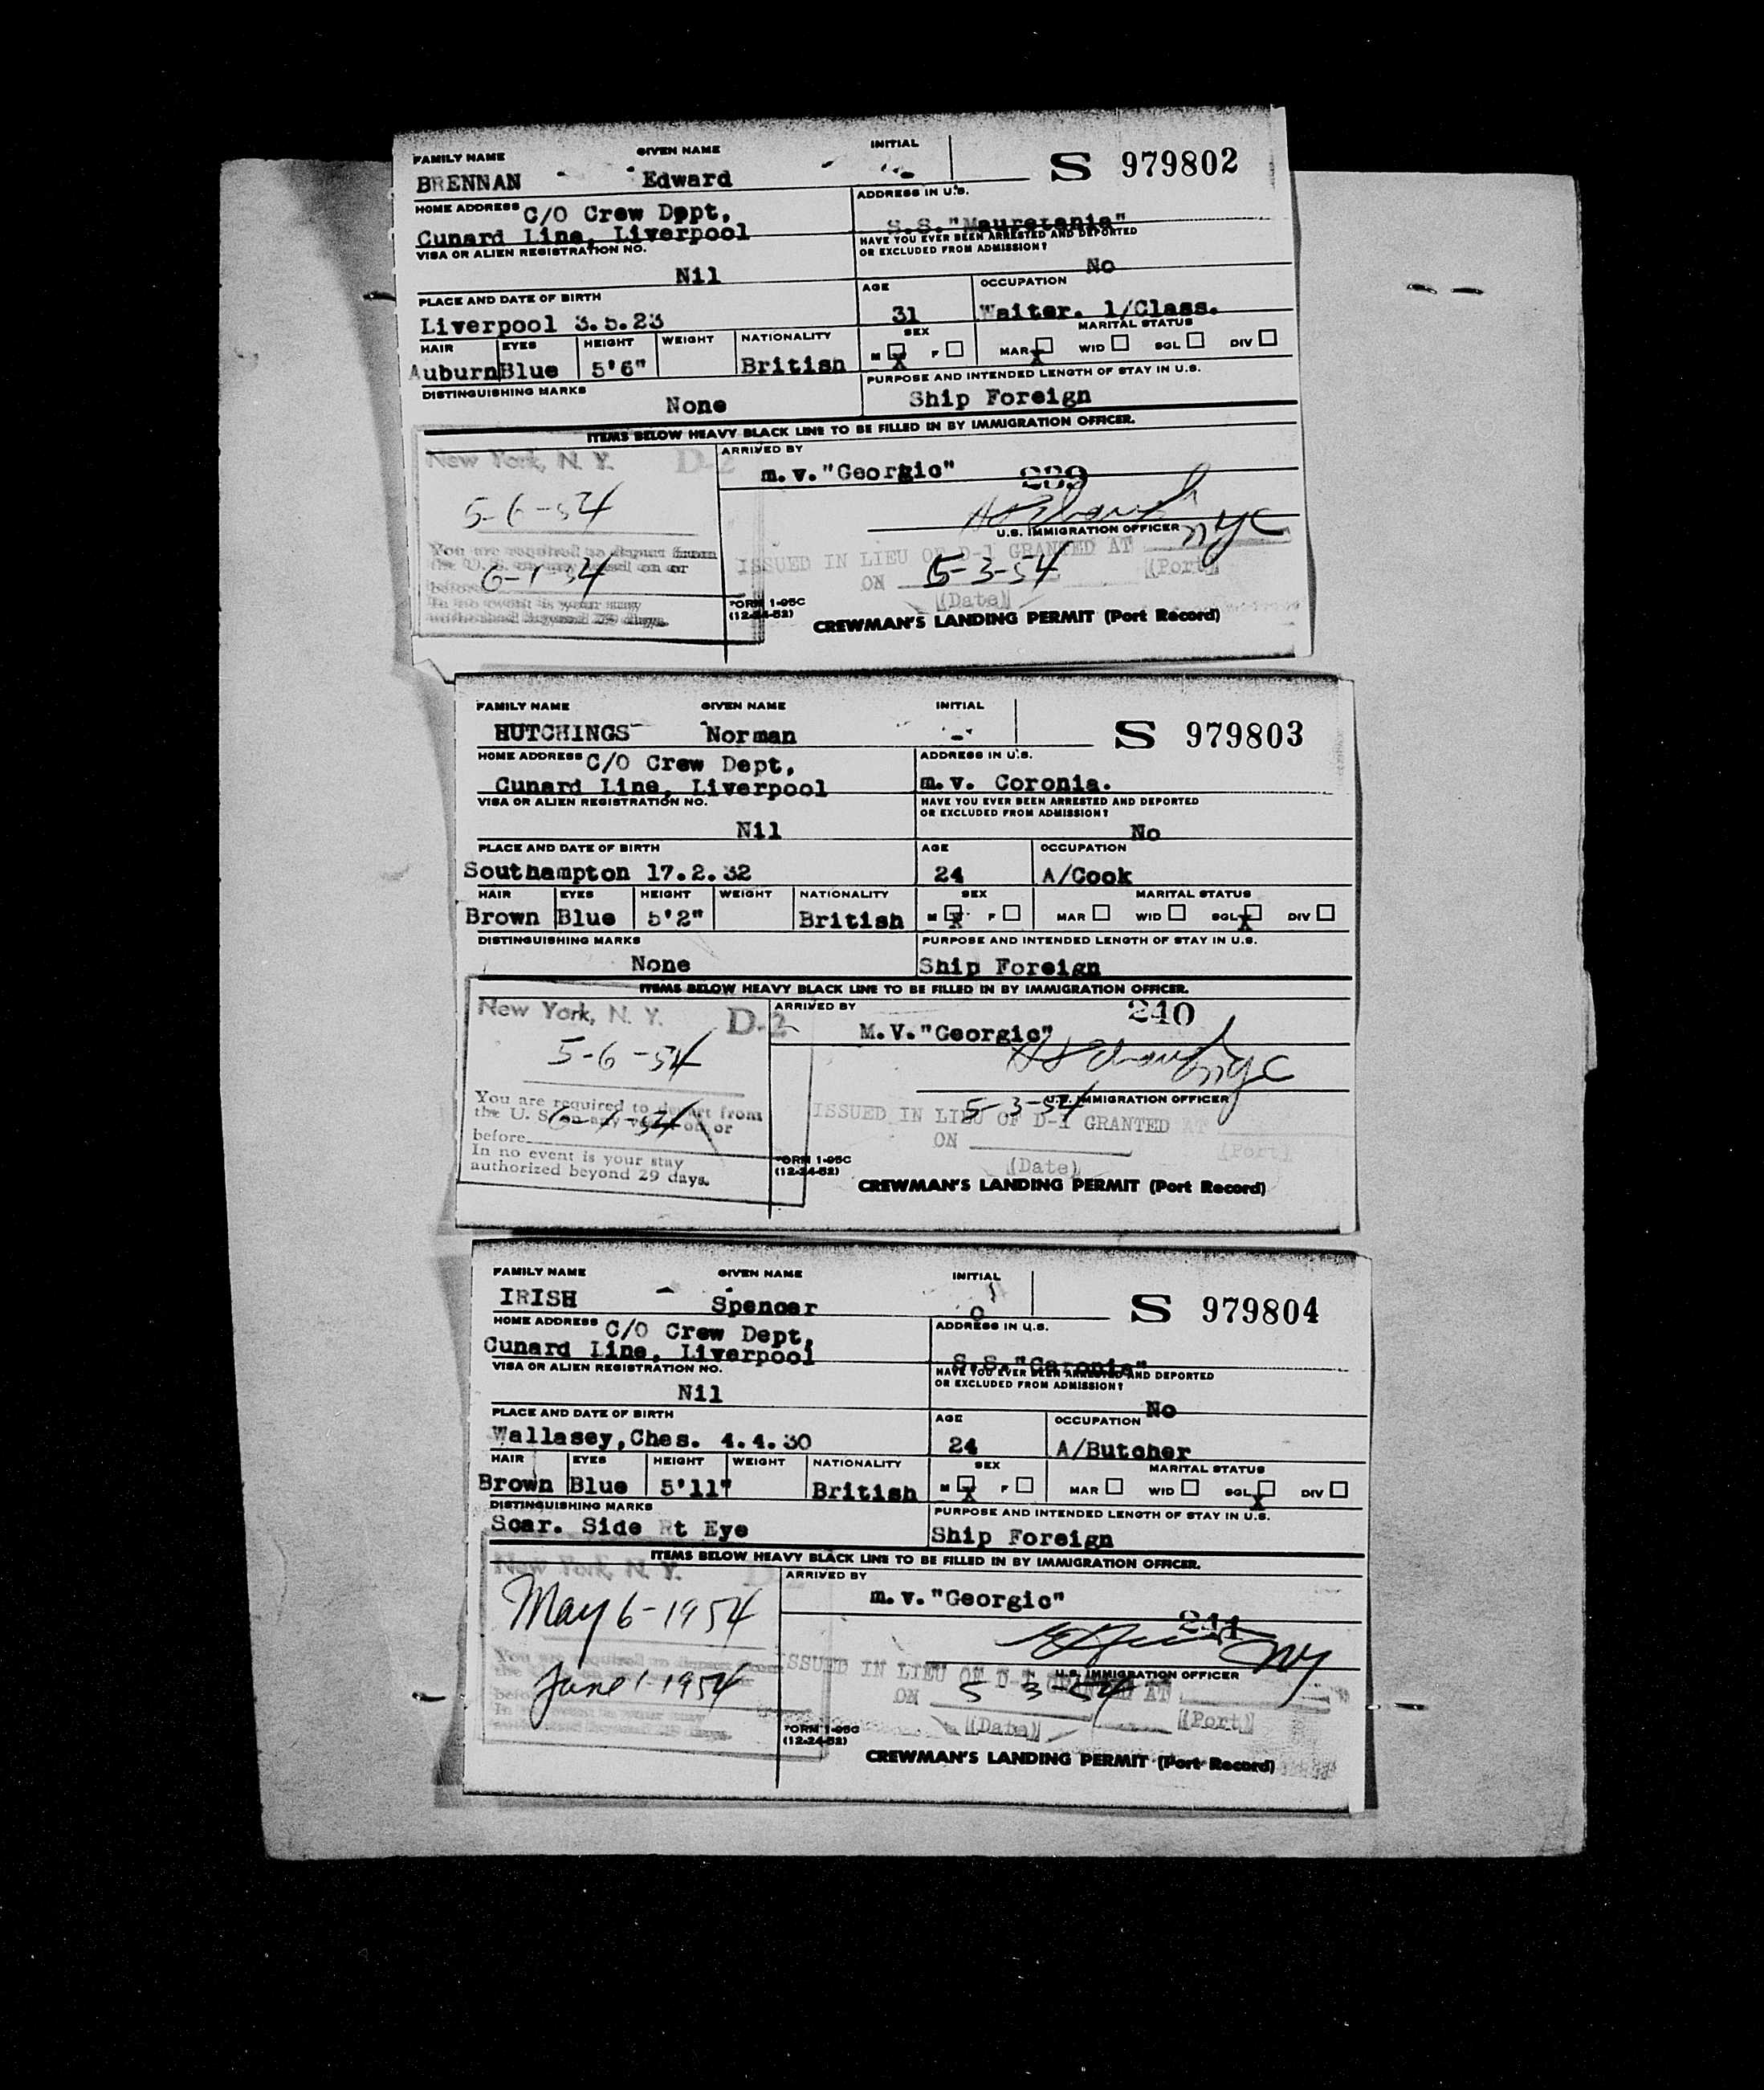 FAMILY NAME GIVEN NAME INITIAL
BRENNAN - Edward - S 979802
HOME ADDRESS C/O Crew Dept, ADDRESS IN U.S.
Cunard Line, Liverpool S.S."Mauretania"
VISA OR ALIEN REGISTRATION NO. HAVE YOU EVER BEEN ARRESTED AND DEPORTED
OR EXCLUDED FROM ADMISSION?
Nil No
PLACE AND DATE OF BIRTH AGE OCCUPATION
Liverpool 3.5.23 31 Waiter. 1/Class.
HAIR EYES HEIGHT WEIGHT NATIONALITY SEX MARITAL STATUS
Auburn Blue 5'6" British M X F MAR X WID SGL DIV
DISTINGUISHING MARKS PURPOSE AND INTENDED LENGTH OF STAY IN U.S.
None Ship Foreign
ITEMS BELOW HEAVY BLACK LINE TO BE FILLED IN BY IMMIGRATION OFFICER.
New York, N. Y. D-2 ARRIVED BY
m.v."Georgic" 239
5-6-54
U.S. IMMIGRATION OFFICER NYC
You are required to depart from
the U. S. on any vessel on or
before 6-1-54
In no event is your stay
authorized beyond 29 days.
ISSUED IN LIEU OF D-1 GRANTED AT
ON 5-3-54 (Port)
(Date)
FORM I-95C
(12-24-52)
CREWMAN'S LANDING PERMIT (Port Record)
FAMILY NAME GIVEN NAME INITIAL
HUTCHINGS Norman - S 979803
HOME ADDRESS C/O Crew Dept, ADDRESS IN U.S.
Cunard Line, Liverpool m.v. Coronia.
VISA OR ALIEN REGISTRATION NO. HAVE YOU EVER BEEN ARRESTED AND DEPORTED
OR EXCLUDED FROM ADMISSION?
Nil No
PLACE AND DATE OF BIRTH AGE OCCUPATION
Southampton 17.2.32 24 A/Cook
HAIR EYES HEIGHT WEIGHT NATIONALITY SEX MARITAL STATUS
Brown Blue 5'2" British M X F MAR WID SGL X DIV
DISTINGUISHING MARKS PURPOSE AND INTENDED LENGTH OF STAY IN U.S.
None Ship Foreign
ITEMS BELOW HEAVY BLACK LINE TO BE FILLED IN BY IMMIGRATION OFFICER.
New York, N. Y. D-2 ARRIVED BY 240
M.V."Georgic"
5-6-54 NYC
U.S. IMMIGRATION OFFICER
You are required to depart from
the U. S. on any vessel on or
before 6-1-54
In no event is your stay
authorized beyond 29 days.
5-3-54
ISSUED IN LIEU OF D-1 GRANTED AT
ON (Port)
(Date)
FORM I-95C
(12-24-52)
CREWMAN'S LANDING PERMIT (Port Record)
FAMILY NAME GIVEN NAME INITIAL
IRISH - Spencer O S 979804
HOME ADDRESS C/O Crew Dept, ADDRESS IN U.S.
Cunard Line, Liverpool S.S."Caronia"
VISA OR ALIEN REGISTRATION NO. HAVE YOU EVER BEEN ARRESTED AND DEPORTED
OR EXCLUDED FROM ADMISSION?
Nil No
PLACE AND DATE OF BIRTH AGE OCCUPATION
Wallasey,Ches. 4.4.30 24 A/Butcher
HAIR EYES HEIGHT WEIGHT NATIONALITY SEX MARITAL STATUS
Brown Blue 5'11" British M X F MAR WID SGL X DIV
DISTINGUISHING MARKS PURPOSE AND INTENDED LENGTH OF STAY IN U.S.
Scar. Side Rt Eye Ship Foreign
ITEMS BELOW HEAVY BLACK LINE TO BE FILLED IN BY IMMIGRATION OFFICER.
New York, N. Y. D-2 ARRIVED BY
m.v."Georgic"
May 6-1954 241
NY
U.S. IMMIGRATION OFFICER
You are required to depart from
June 1-1954
ISSUED IN LIEU OF D-1 GRANTED AT
ON 5 3-54
(Date) (Port)
FORM I-95C
(12-24-52)
CREWMAN'S LANDING PERMIT (Port Record)